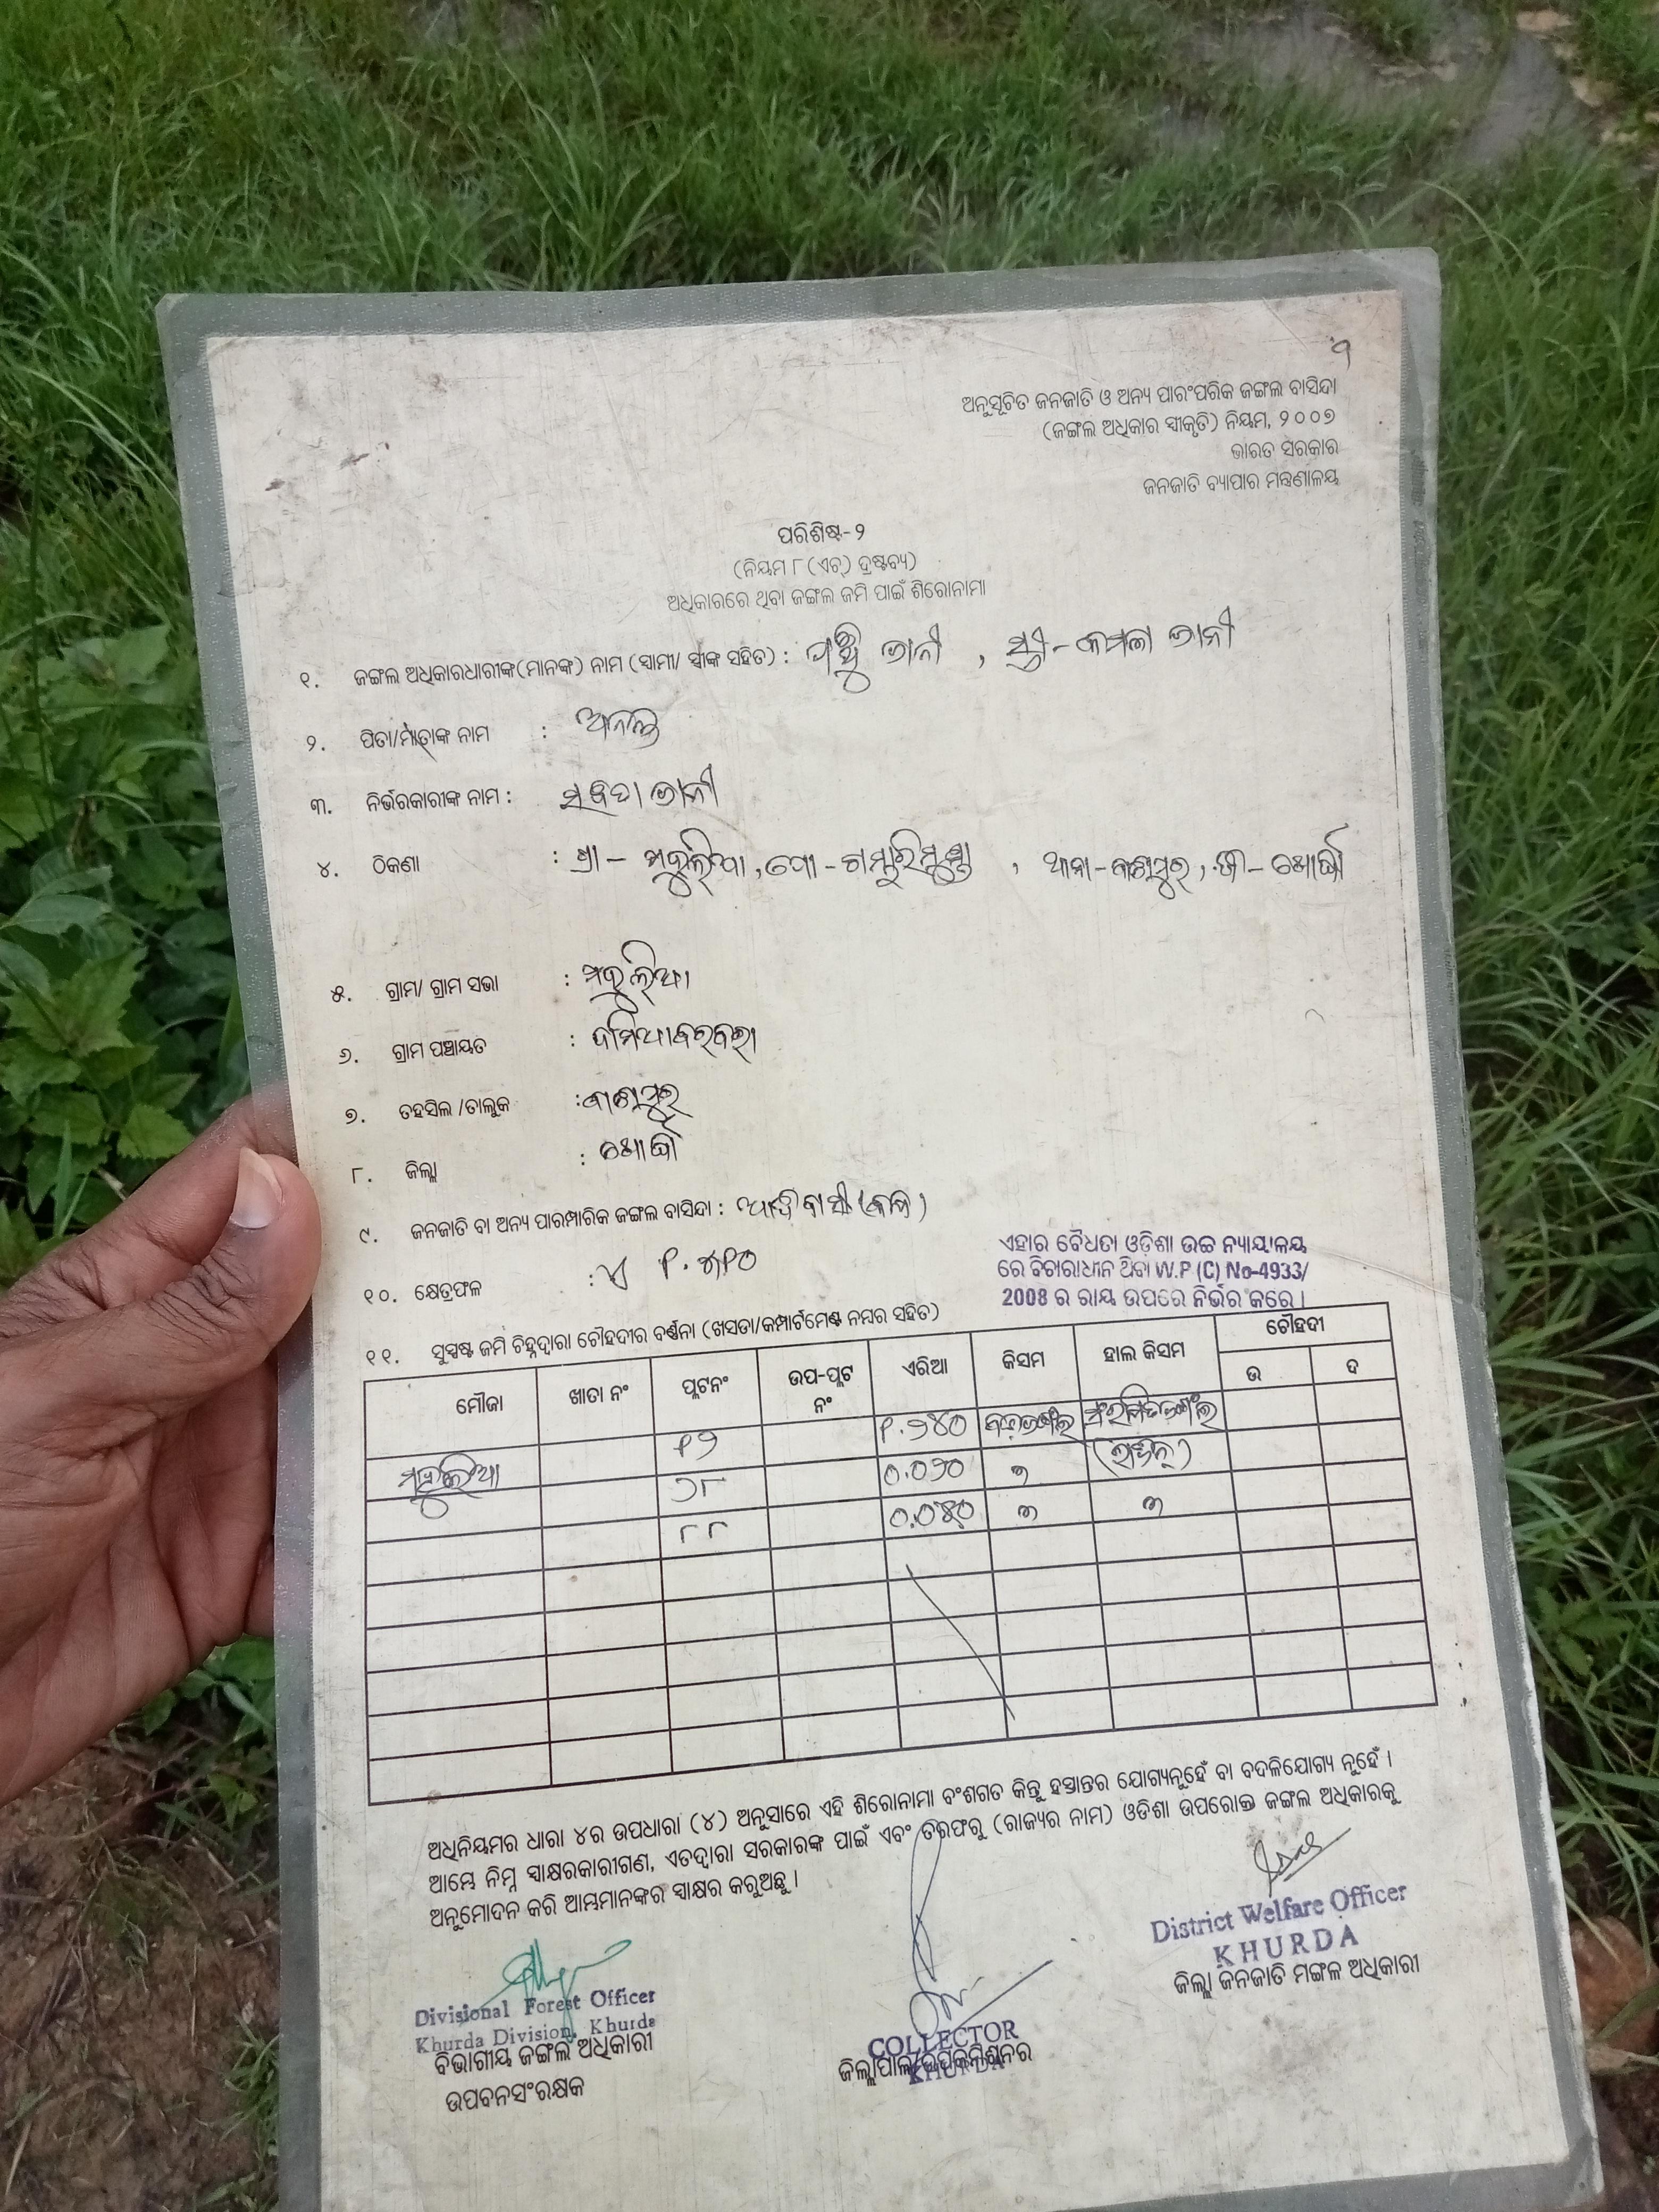 ୩
ଅନୁସୂଚିତ ଜନଜାତି ଓ ଅନ୍ୟ ପାରଂପରିକ ଜଙ୍ଗଲ ବାସିନ୍ଦା
(ଜଙ୍ଗଲ ଅଧିକାର ସ୍ୱୀକୃତି) ନିୟମ, ୨୦୦୭
ଭାରତ ସରକାର
ଜନଜାତି ବ୍ୟାପାର ମନ୍ତ୍ରଣାଳୟ
ପରିଶିଷ୍ଟ-୨
(ନିୟମ ୮ (ଏଚ୍) ଦ୍ରଷ୍ଟବ୍ୟ)
ଅଧିକାରରେ ଥିବା ଜଙ୍ଗଲ ଜମି ପାଇଁ ଶିରୋନାମା
୧. ଜଙ୍ଗଲ ଅଧିକାରଧାରୀଙ୍କ(ମାନଙ୍କ) ନାମ (ସ୍ୱାମୀ/ ସ୍ତ୍ରୀଙ୍କ ସହିତ) : ଜାନୀ , ସ୍ତ୍ରୀ- ଜାନୀ
୨. ପିତା/ମାତାଙ୍କ ନାମ :
୩. ନିର୍ଭରକାରୀଙ୍କ ନାମ : ଜାନୀ
୪. ଠିକଣା : ଗ୍ରା - ମହୁଲିଆ, ପୋ - ଗମ୍ଭାରିମୁଣ୍ଡା , ଥାନା-ବାଣପୁର, ଜି-ଖୋର୍ଦ୍ଧା
୫. ଗ୍ରାମ/ ଗ୍ରାମ ସଭା : ମହୁଲିଆ
୬. ଗ୍ରାମ ପଞ୍ଚାୟତ : ଦମିଆବରବରା
୭. ତହସିଲ /ତାଲୁକ : ବାଣପୁର
୮. ଜିଲ୍ଲା : ଖୋର୍ଦ୍ଧା
୯. ଜନଜାତି ବା ଅନ୍ୟ ପାରମ୍ପାରିକ ଜଙ୍ଗଲ ବାସିନ୍ଦା : ଆଦିବାସୀ
୧୦. କ୍ଷେତ୍ରଫଳ :
ଏହାର ବୈଧତା ଓଡ଼ିଶା ଉଚ୍ଚ ନ୍ୟାୟାଳୟ
ରେ ବିଚାରାଧୀନ ଥିବା W.P (C) No-4933/
2008 ର ରାୟ ଉପରେ ନିର୍ଭର କରେ ।
୧୧. ସୁସ୍ପଷ୍ଟ ଜମି ଚିହ୍ନଦ୍ୱାରା ଚୌହଦୀର ବର୍ଣ୍ଣନା (ଖସଡା/କମ୍ପାର୍ଟମେଣ୍ଟ ନମ୍ବର ସହିତ)
ମୌଜା ଖାତା ନଂ ପ୍ଲଟନଂ ଉପ-ପ୍ଲଟ ନଂ ଏରିଆ କିସମ ହାଲ କିସମ ଚୌହଦୀ
ଉ ଦ
ମହୁଲିଆ
୮୮
ଅଧିନିୟମର ଧାରା ୪ର ଉପଧାରା (୪) ଅନୁସାରେ ଏହି ଶିରୋନାମା ବଂଶଗତ କିନ୍ତୁ ହସ୍ତାନ୍ତର ଯୋଗ୍ୟନୁହେଁ ବା ବଦଳିଯୋଗ୍ୟ ନୁହେଁ ।
ଆମ୍ଭେ ନିମ୍ନ ସ୍ୱାକ୍ଷରକାରୀଗଣ, ଏତଦ୍ୱାରା ସରକାରଙ୍କ ପାଇଁ ଏବଂ ତରଫରୁ (ରାଜ୍ୟର ନାମ) ଓଡିଶା ଉପରୋକ୍ତ ଜଙ୍ଗଲ ଅଧିକାରକୁ
ଅନୁମୋଦନ କରି ଆମ୍ଭମାନଙ୍କର ସ୍ୱାକ୍ଷର କରୁଅଛୁ ।
District Welfare Officer
KHURDA
ଜିଲ୍ଲା ଜନଜାତି ମଙ୍ଗଳ ଅଧିକାରୀ
Divisional Forest Officer
Khurda Division, Khurda
ବିଭାଗୀୟ ଜଙ୍ଗଲ ଅଧିକାରୀ
ଉପବନସଂରକ୍ଷକ
COLLECTOR
KHURDA
ଜିଲ୍ଲାପାଳ/ଉପକମିଶନର